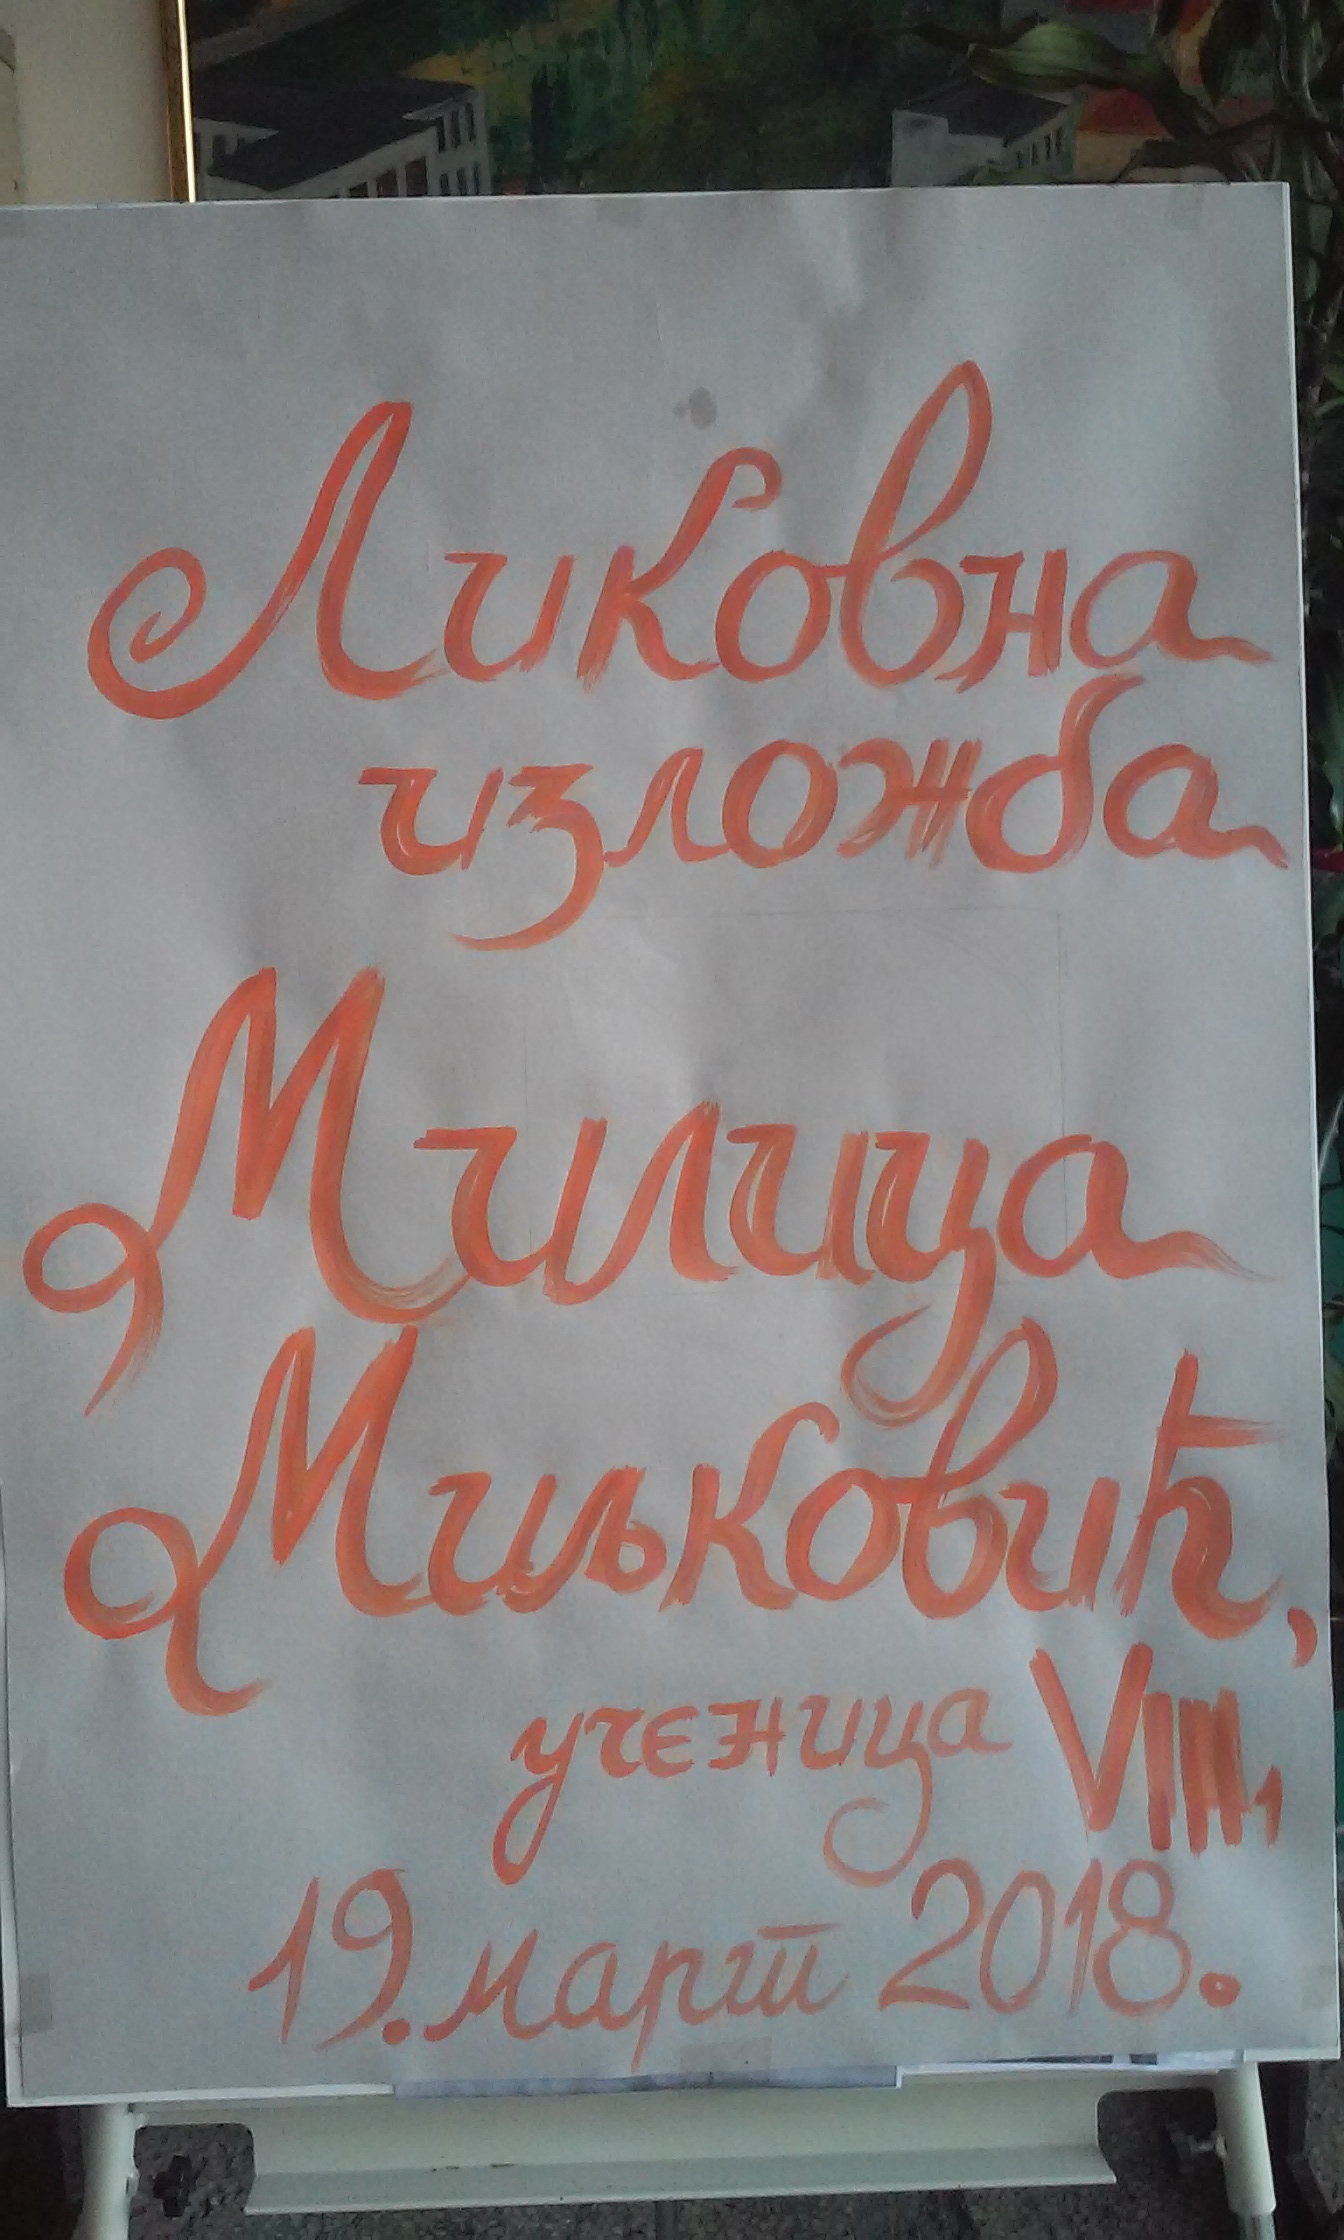 Ликовна
изложба
Милица
Миљковић,
ученица VIII₁
19. март 2018.